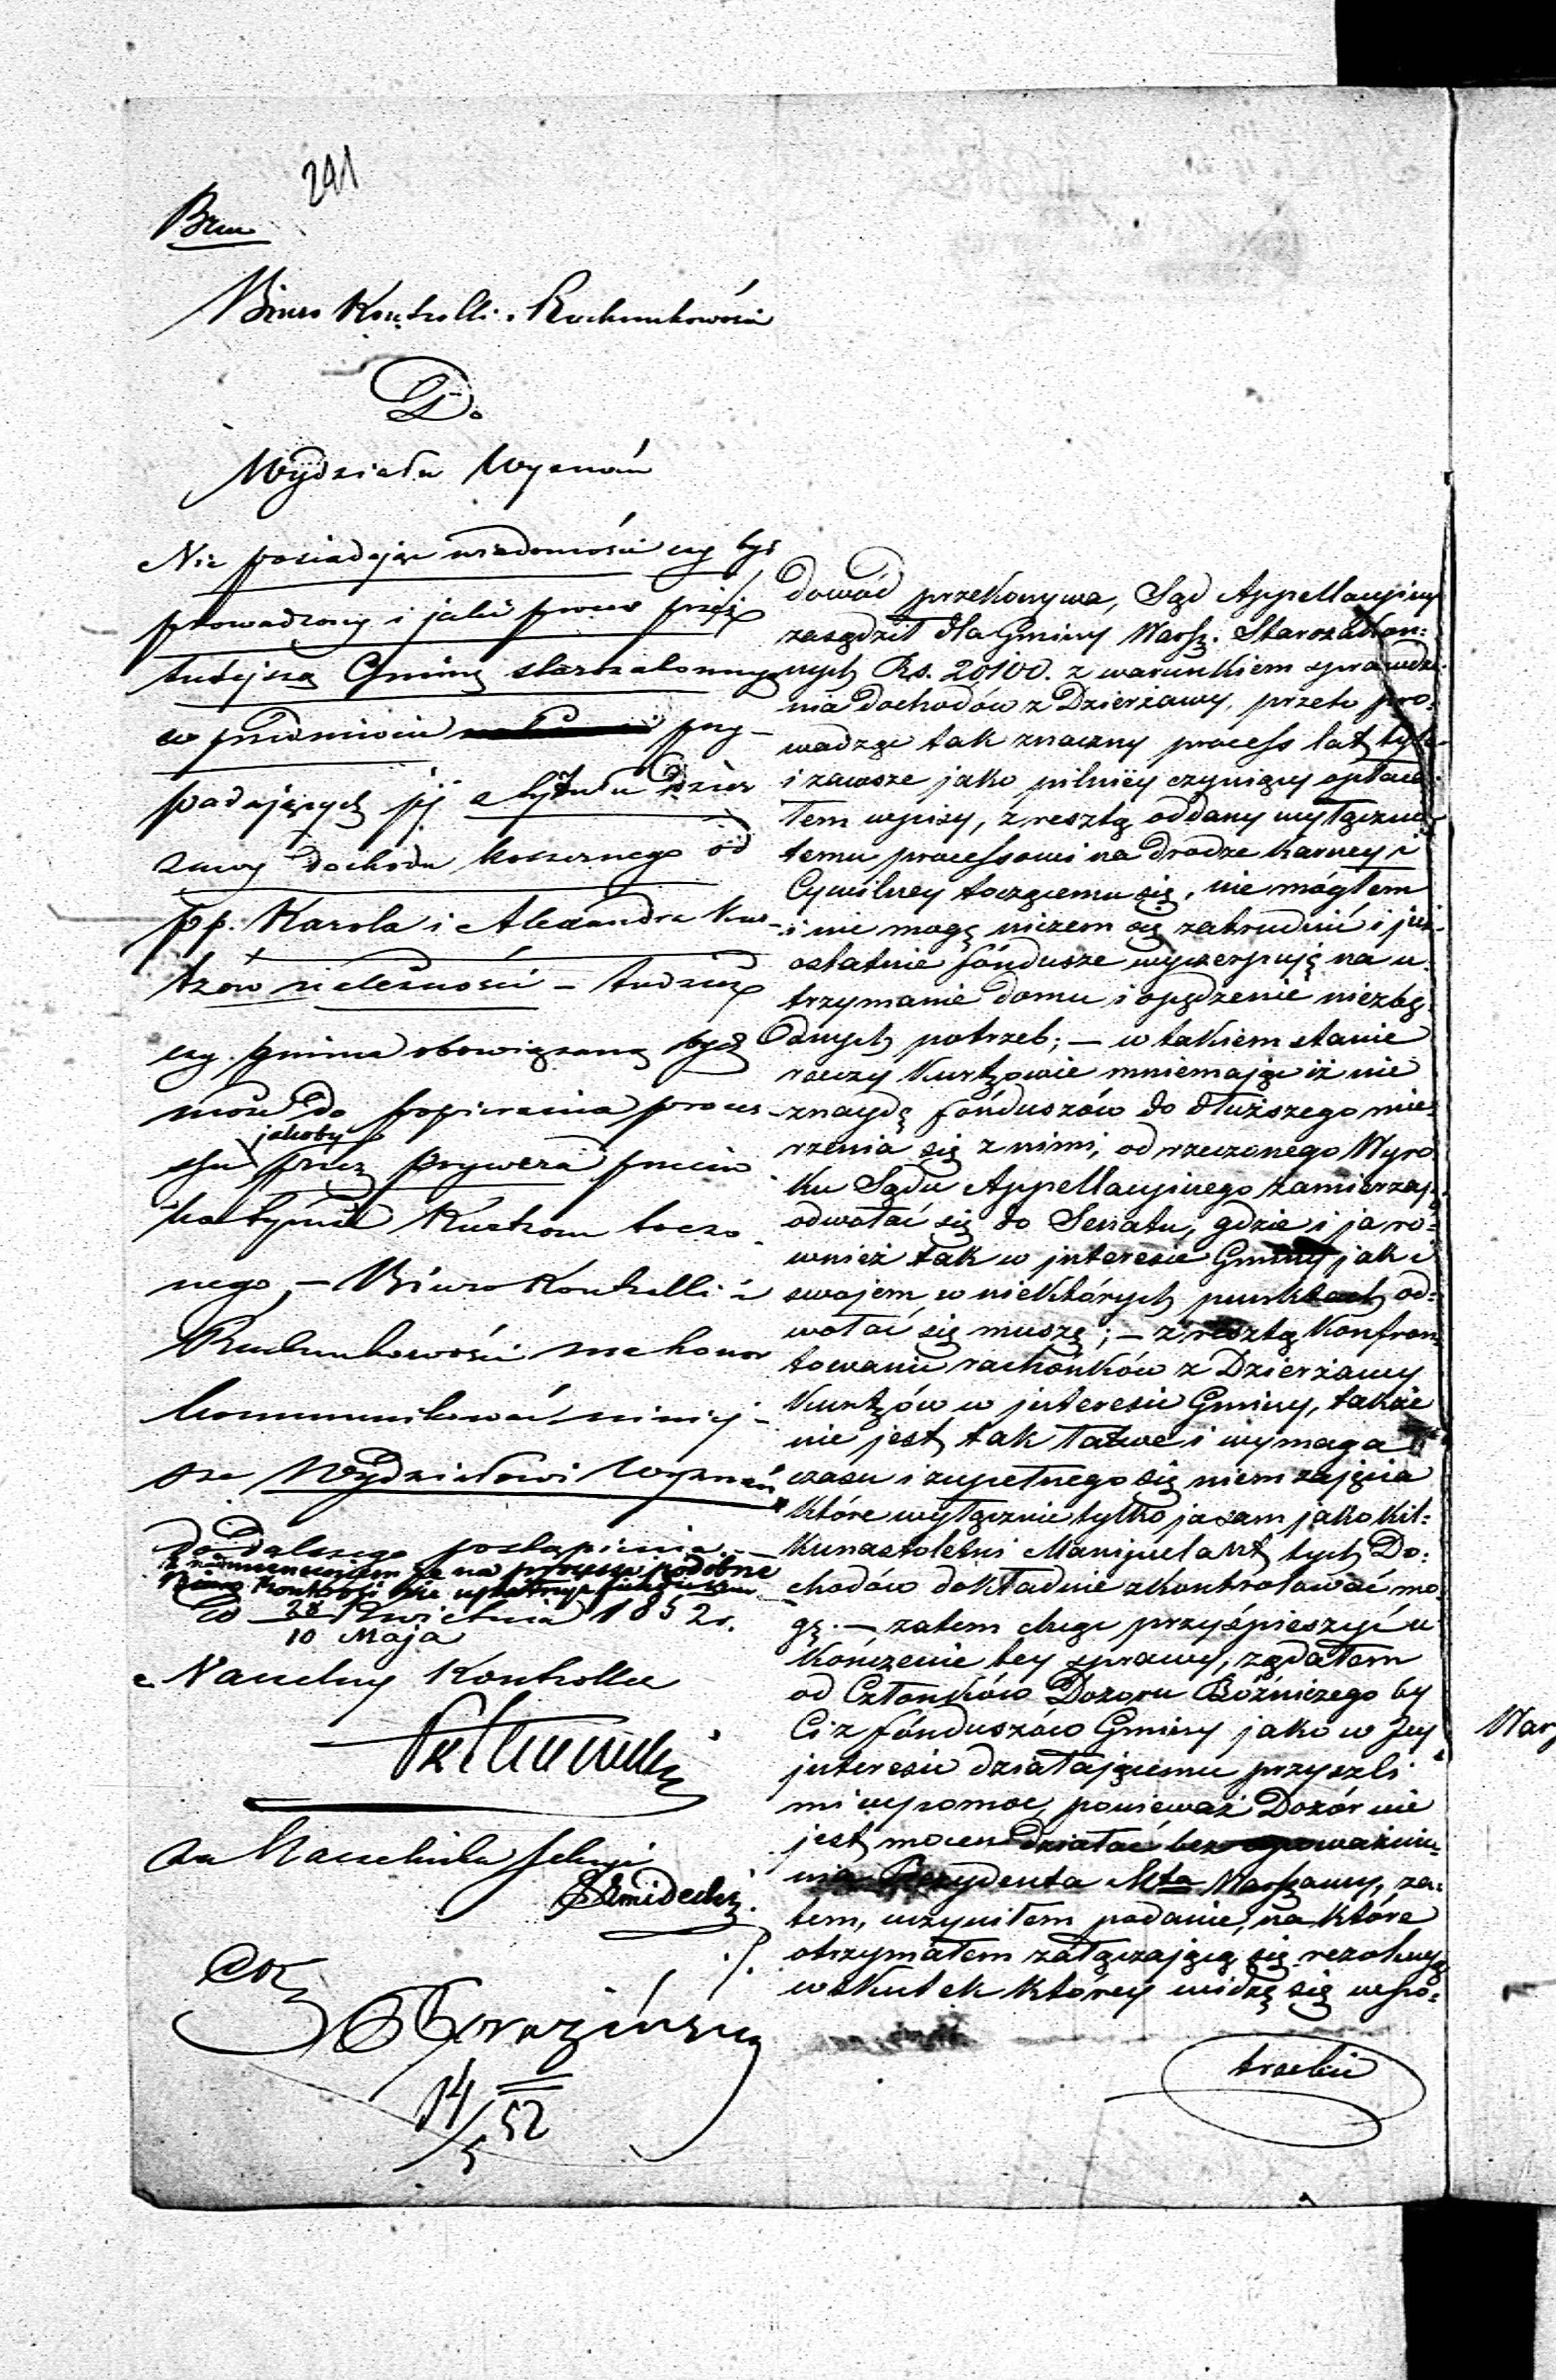 241
Brm
Biuro Kontrolli i Rachunkowości
Do
Wydziału Wyznań
Nie posiadając wiadomości czy był
prowadzony i jaki proces przez
tutejszą Gminę starozakonnych
w przedmiocie przy-
padających jéj z tytułu Dzier
żawy dochodu koszernego od
pp. Karola i Alexandra Kur-
tzów należności – tudzież
czy gmina obowiązaną być
może do popierania proces-
jakoby
ssu przez Prywera przeciw
ko tymże Kurtzom toczo-
nego, – Biuro Kontrolli i
Rachunkowości ma honor
kommunikować niniej-
sze Wydziałowi Wyznań
do dalszego postąpienia. –
z nadmienieniem że na processa podobne
Biuro Kontroli nie upatruje funduszu
D 28 Kwietnia 1852 r.
10 Maja
Naczelny Kontroller
za Naczelnika Sekcyi
14/5 52
dowód przekonywa, Sąd Appellacyiny
zasądził dla Gminy Warsz. Starozakon:
nych Rs. 20100. z warunkiem sprawdze-
nia dochodów z Dzierżawy, przeto pro-
wadząc tak znaczny process lat tyle
i zawsze jako pilniéy czyniący opłaca-
łem wpisy, z resztą oddany wyłącznie
temu processowi na drodze karney i
Cywilney toczącemu się, nie mógłem
i nie mogę niczem się zatrudnić i już
ostatnie fundusze wyczerpuję na u-
trzymanie domu i opędzenie niezbę-
dnych potrzeb; – w takiem stanie
rzeczy Kurtzowie mniemając iż nie
znaydę funduszów do dłuższego mie-
rzenia się z nimi, od rzeczonego Wyro-
ku Sądu Appellacyinego zamierzają
odwołać się do Senatu, gdzie i ja ró-
wnież tak w interesie Gminy jak i
swojem w niektórych punktach od-
wołać się muszę; – z resztą Konfron-
towanie rachónków z Dzierżawy
Kurtzów w interesie Gminy, także
nie jest tak łatwe i wymaga
czasu i zupełnego się niem zajęcia
które wyłącznie tylko ja sam jako kil-
kunastoletni Manipulant tych Do-
chodów dokładnie zkontrolować mo-
gę. – zatem chcąc przyśpieszyć u
kończenie tey sprawy, żądałem
od Członków Dozoru Bóżniczego by
Ci z fónduszów Gminy jako w Jey
interesie działającemu przyszli
mi w pomoc, ponieważ Dozór nie
jest mocen działać bez upoważnie-
nia Prezydenta Mta Warszawy, za-
tem, uczyniłem podanie, na które
otrzymałem załączającą się rezolucyę
wskutek którey widzę się w po-
trzebie